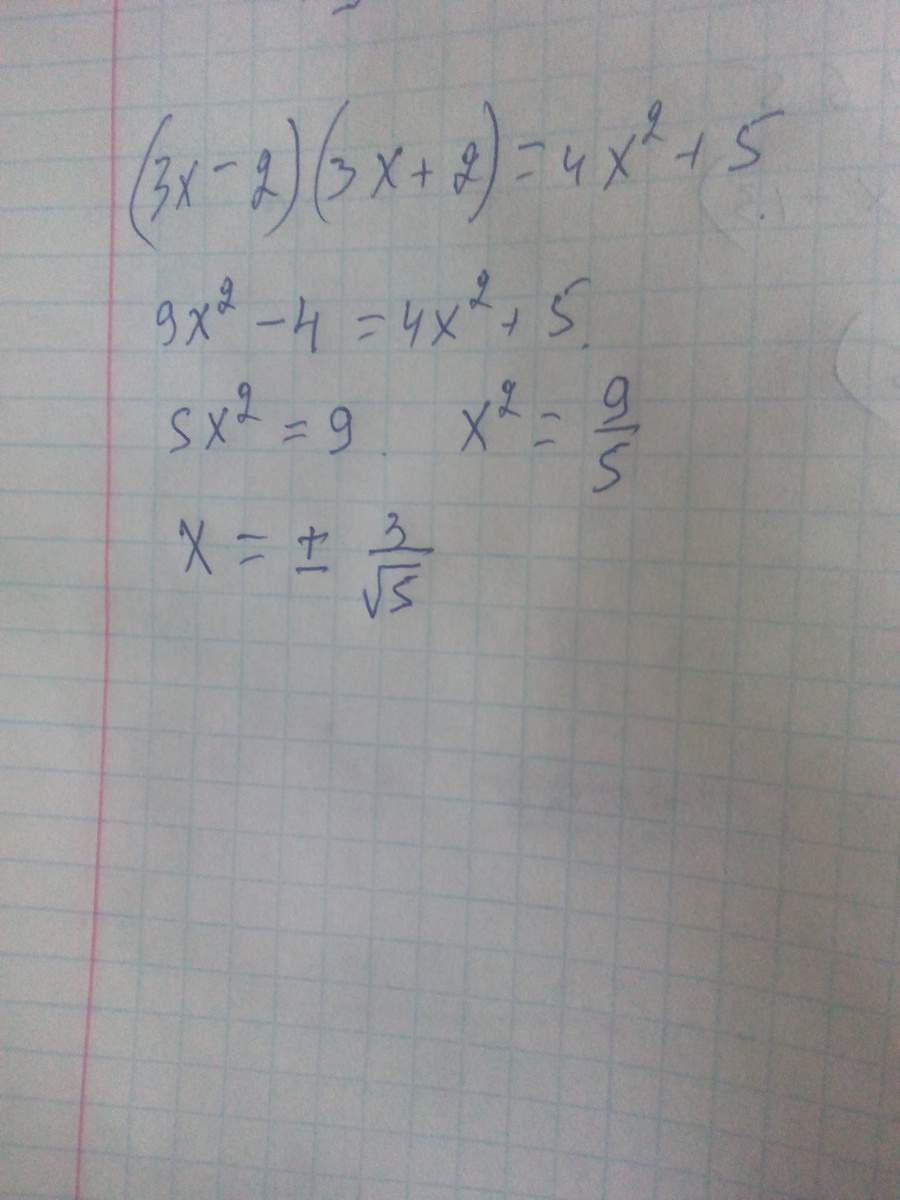 (3x - 2)(3x + 2) = 4x² + 5
9x² - 4 = 4x² + 5.
5x² = 9. x² = 9/5
x = ± 3/√5